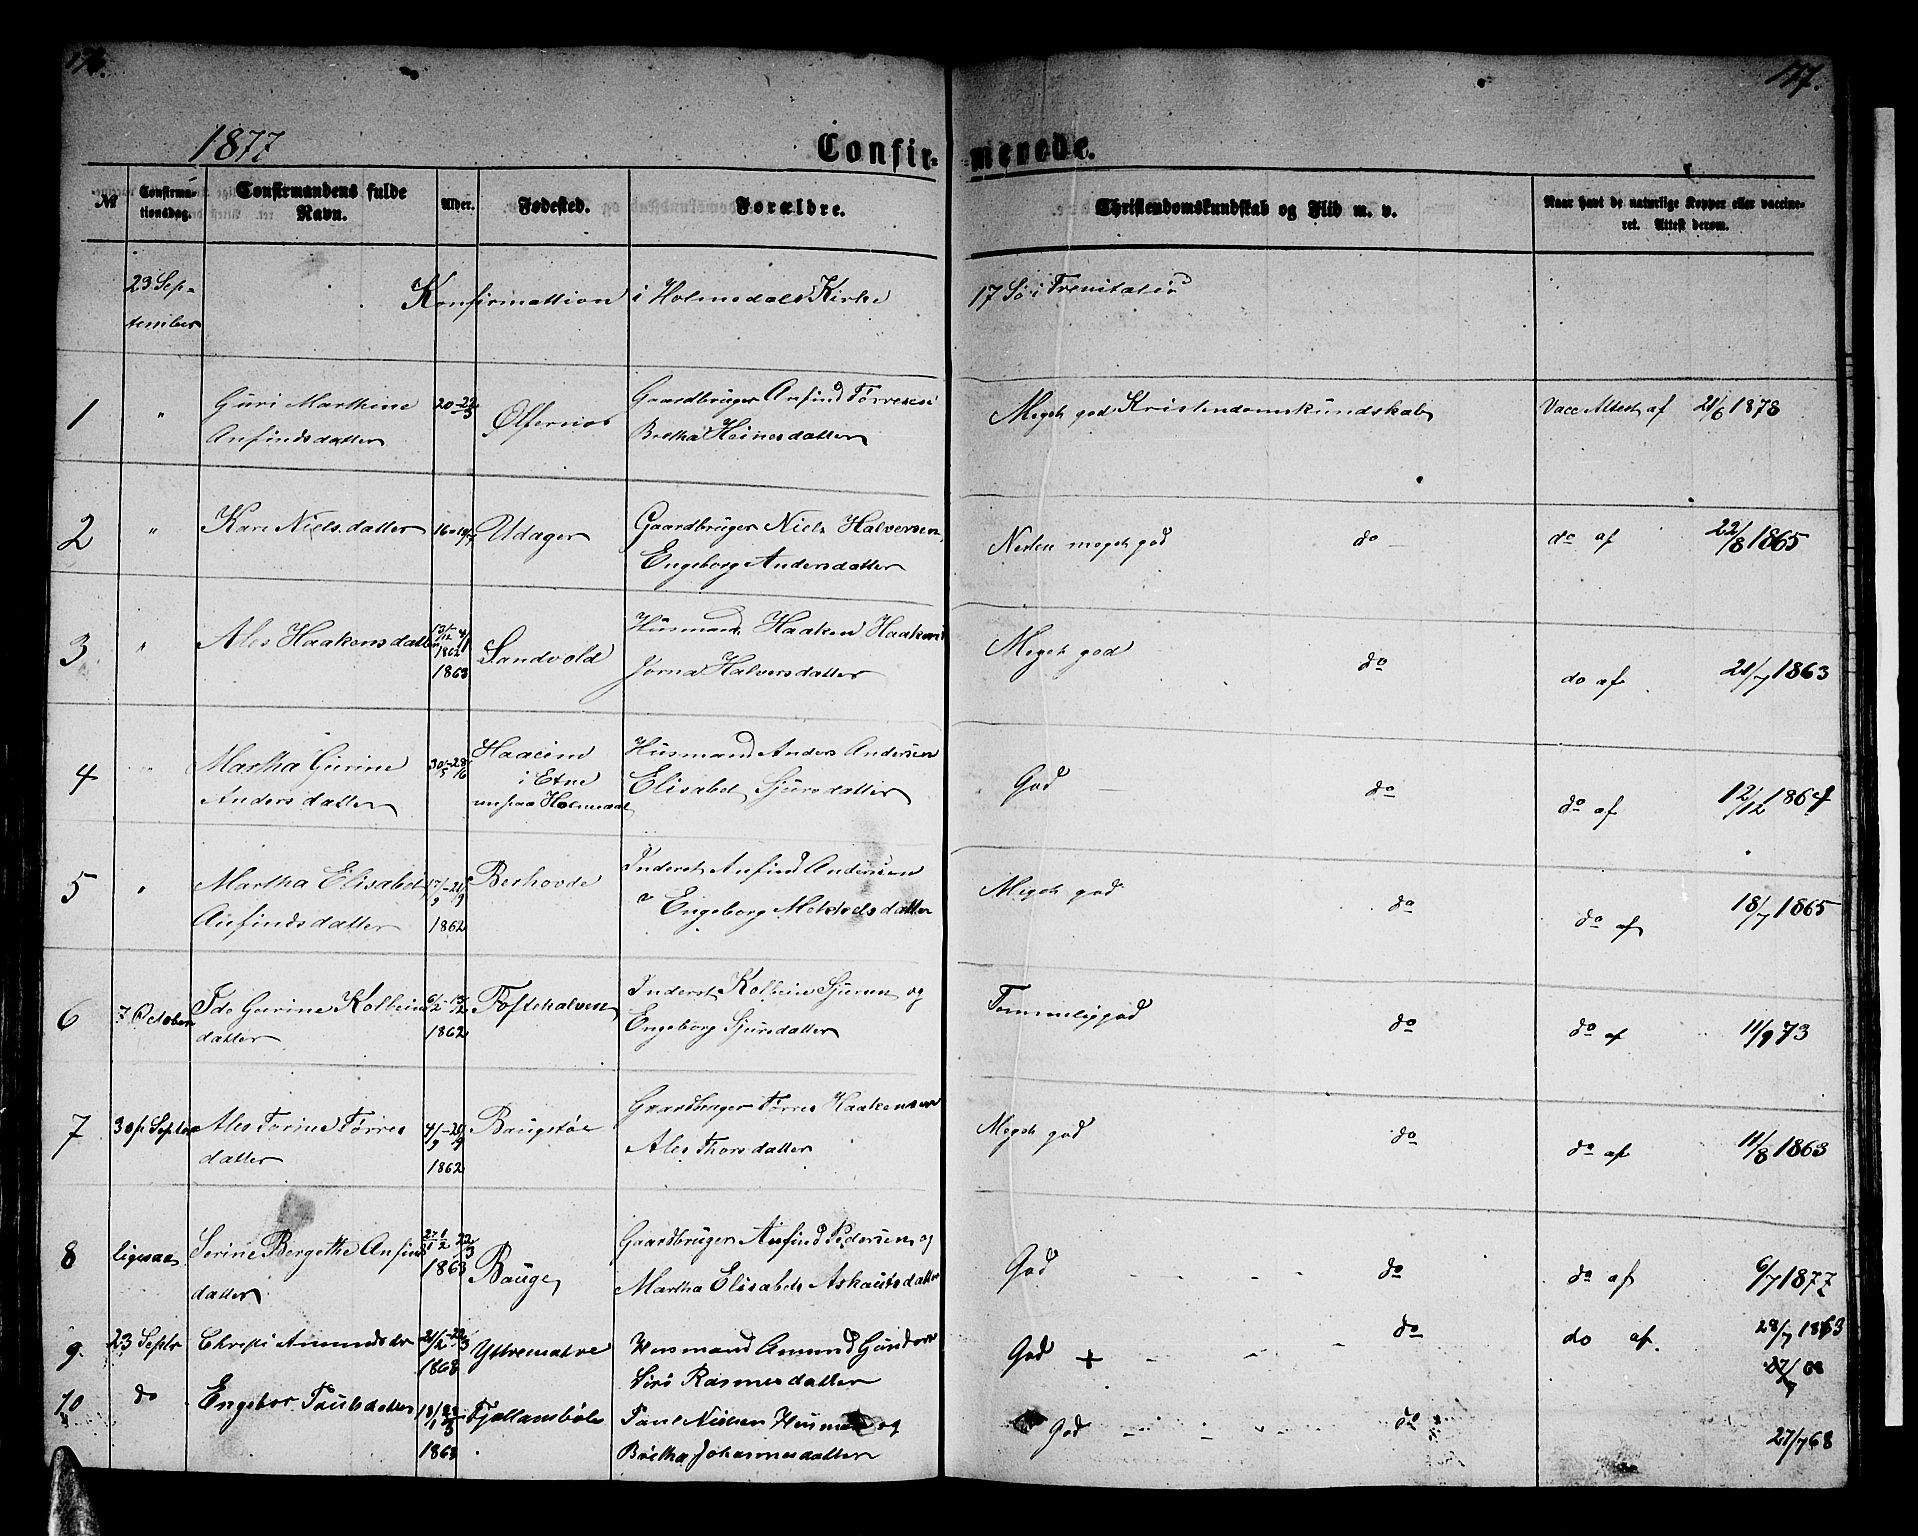 176.
177.
1877
Confir-
merede.
No
Confirma-
tionsdag.
Confirmandens fulde
Navn.
Alder.
Fødested.
Forældre.
Christendomskundskab og Flid m. v.
Naar havt de naturlige Kopper eller vaccine-
ret. Attest derom.
23 Sep-
tember
Konfirmattion i Holmedals Kirke
17 Sø i Trenitatis
1
"
Guri Marthine
Anfindsdatter
20-22/3
Ølfernes
Gaardbruger Anfind Tørresen
Bertha Heinesdatter
Meget god Kristendomskundskab
Vacc Attest af 21/6 1878
2
"
Kari Nielsdatter
16-19/7
Udager
Gaardbruger Niels Halversen
Engeborg Andersdatter
Nesten meget god
do
do af
22/8 1865
3
"
Ales Haakensdatter
1862
1863
Sandvold
Husmand Haaken Haakens
Jorna Halversdatter
Meget god
do
do af
21/7 1863
4
"
Martha Gurine
Andersdatter
30/5-28/6
Haaeim
i Etne
Husmand Anders Andersen
Elisabet Sjursdatter
God
do
do af
12/12 1864
5
"
Martha Elisabet
Anfindsdatter
17/9-21/9
1862
Berhovde
Inderst Anfind Andersen
Engeborg Mekkelsdatter
Meget god
do
do af
18/7 1865
6
7 October
Gurine Kolbeins
datter
1862
Toftehalven
Inderst Kolbein Sjursen og
Engeborg Sjursdatter
Temmelig god
do
do af
11/9 73
7
30 Septbr
Ales Torine Tørres
datter
4/9-20/9
1862
Baugstøe
Gaardbruger Tørres Haakensen
Ales Thorsdatter
Meget god
do
do af
11/8 1863
8
ligesaa
Serine Bergethe Anfinds
datter
1863
Bauge
Gaardbruger Anfind Pedersen og
Martha Elisabet Askautsdatter
God
do
do af
6/7 1877
9
23 Septbr
Amundsdtr
21/2-22/3
1863
Yttrematre
Husmand Amund
Siri Rasmusdatter
God +
do
do af.
28/7 1863
10
do
Engebor Paulsdatter
1863
Fjellandsbøle
Paul Nielsen Husmand og
Børtha Johannesdatter
God
do
27/7 68